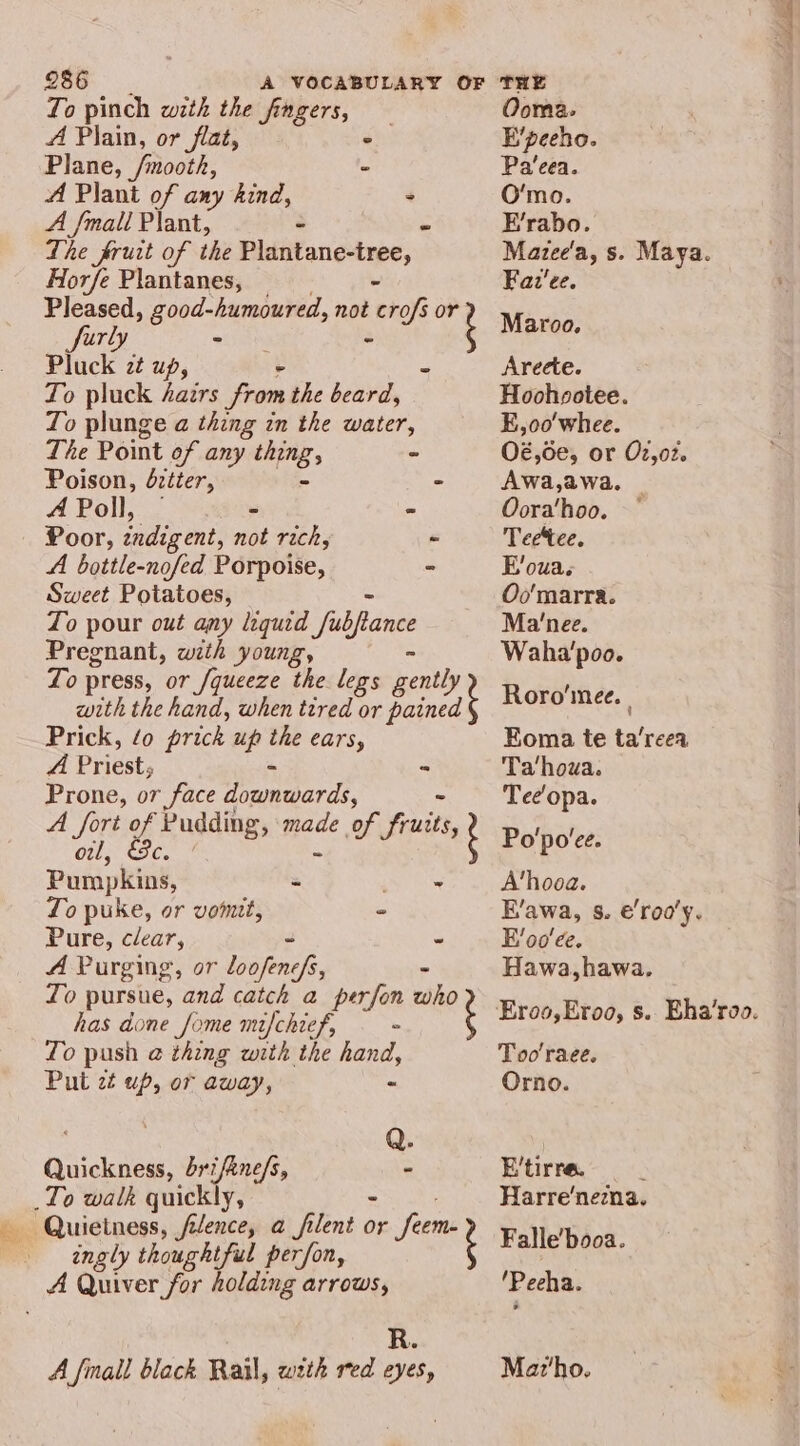 286 A VOCABULARY OF THE
To pinch with the fingers, Ooma.
A Plain, or flat, - E'peeho.
Plane, ſmooth, - Pa'eea.
A Plant of any kind, - O'mo.
A ſmall Plant, - - E'rabo.
The fruit of the Plantane-tree, Maiee'a, s. Maya.
Horſe Plantanes, - Fai'ee.
Pleased, good-humoured, not croſs or ſurly - - } Maroo.
Pluck it up, - - Areete.
To pluck hairs from the beard, Hoohootee.
To plunge a thing in the water, E,oo'whee.
The Point of any thing, - Oë,öe, or Oi,oi.
Poison, bitter, - - Awa,awa.
A Poll, - - Oora'hoo.
Poor, indigent, not rich, - Teetee.
A bottle-noſed Porpoise, - E'oua.
Sweet Potatoes, - Oo'marra.
To pour out any liquid ſubſtance Ma'nee.
Pregnant, with young, - Waha'poo.
To press, or ſqueeze the legs gently with the hand, when tired or pained } Roro'mee.
Prick, to prick up the ears, Eoma te ta'reea
A Priest, - - Ta'houa.
Prone, or face downwards, - Tee'opa.
A ſort of Pudding, made of fruits, oil, &c. - } Po'po'ee.
Pumpkins, - - A'hooa.
To puke, or vomit, - E'awa, s. e'roo'y.
Pure, clear, - - E'oo'ee.
A Purging, or looſeneſs, - Hawa,hawa.
To pursue, and catch a perſon who has done ſome miſchief, - } Eroo,Eroo, s. Eha'roo.
To push a thing with the hand, Too'raee.
Put it up, or away, - Orno.
Q.
Quickness, briſkneſs, - E'tirre.
To walk quickly, - Harre'neina.
Quietness, ſilence, a ſilent or ſeemingly thoughtful perſon, } Falle'booa.
A Quiver for holding arrows, 'Peeha.
R.
A ſmall black Rail, with red eyes, Mai'ho.